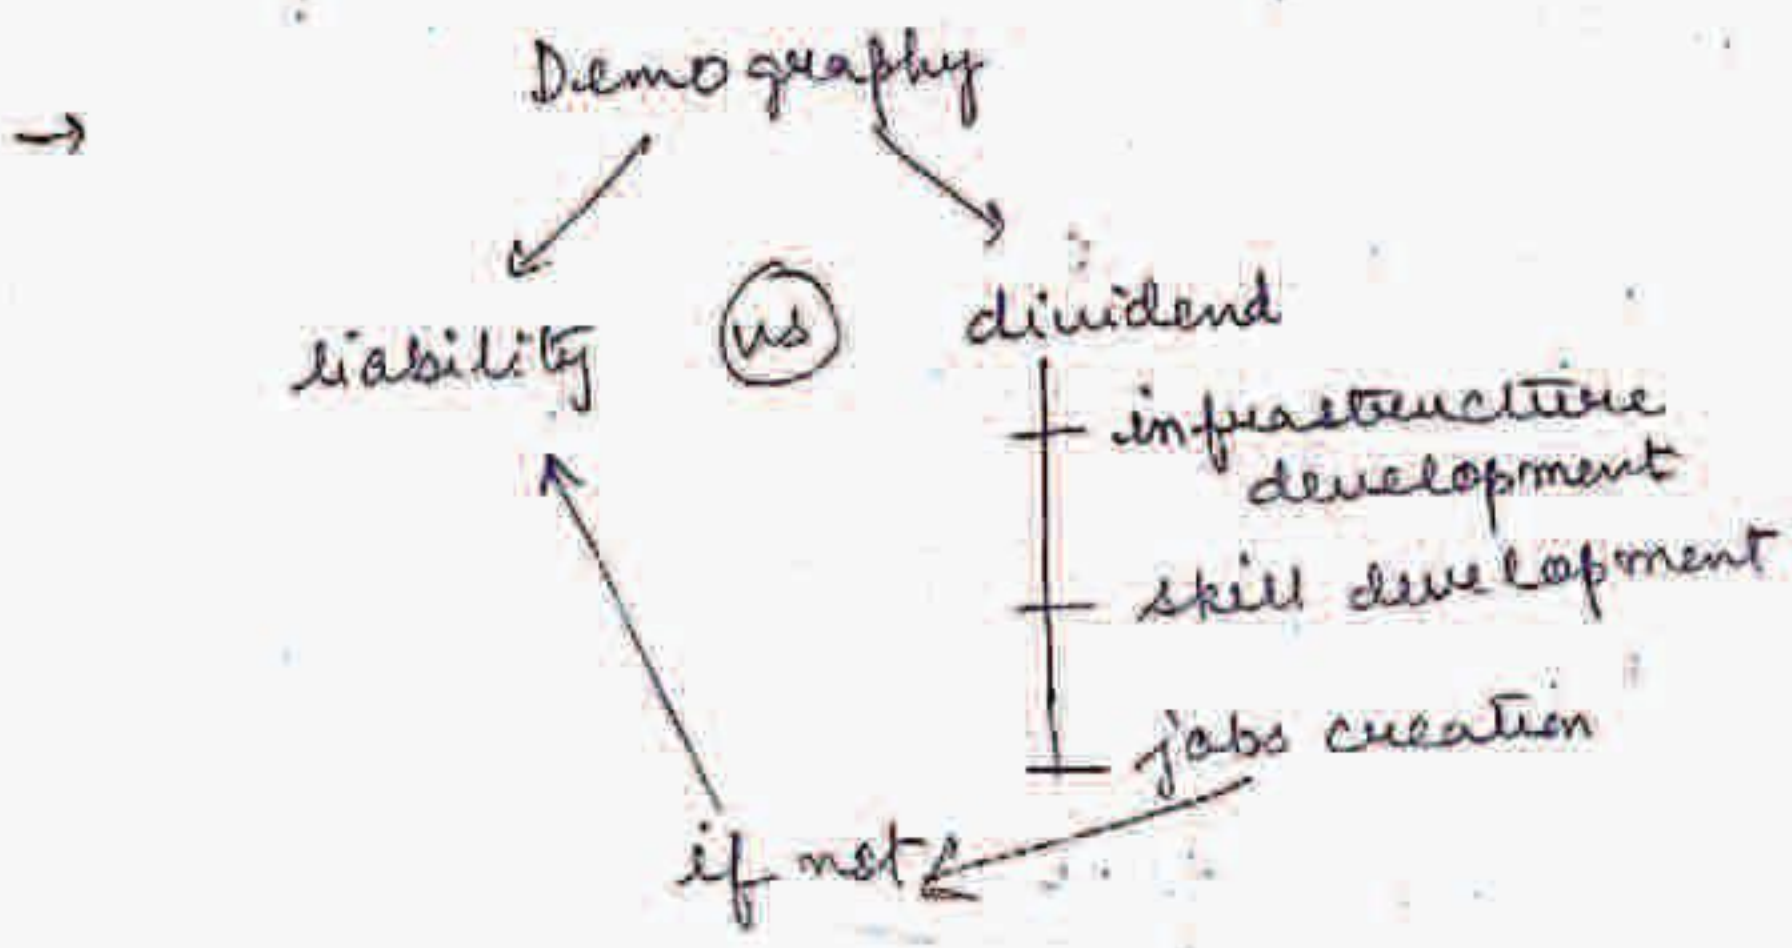 → Demography
liability vs dividend
infrastructure
development
skill development
jobs creation
if not